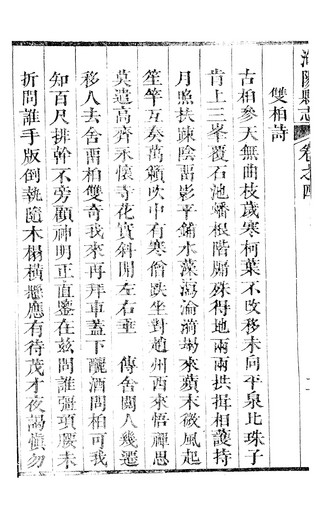 陽縣志 卷之四
雙柏詩
古柏參天無曲枝歲寒柯葉不改移未向平泉比珠子
肯上三峯覆石池蟠根階牖殊得地兩兩拱揖相護持
月照扶疎陰罾影平鋪水藻瀉淪漪場來蘋末微風起
笙竽互奏萬籟吹中有寒僧趺坐對趙州西來悟禪思
莫遣高齊永懷寺花賓斜開左右垂 傳舍閱人幾遷
移人去舍罾柏雙奇我來再拜車蓋下釃酒問柏可我
知百尺排幹不旁顧神明正直鑒在玆問誰彊項嚴未
折問誰手版倒執隨木榻橫懸應有待茂才夜謁愼勿